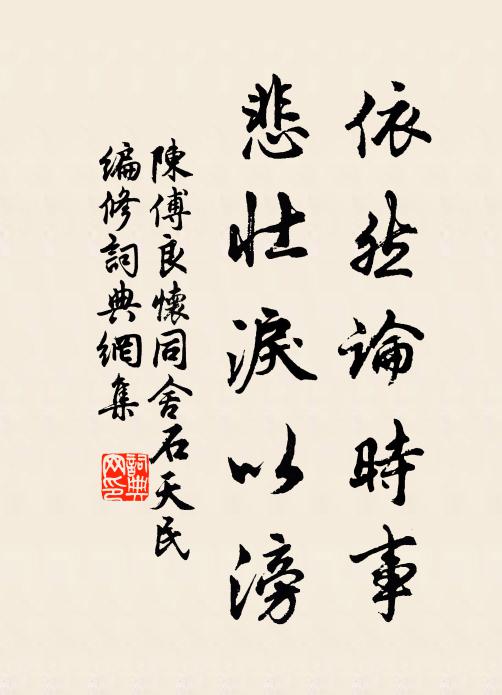 依然論時事
悲壯淚以滂
陳傅良懷同舍石天民
編修詞典網集
詞典网印